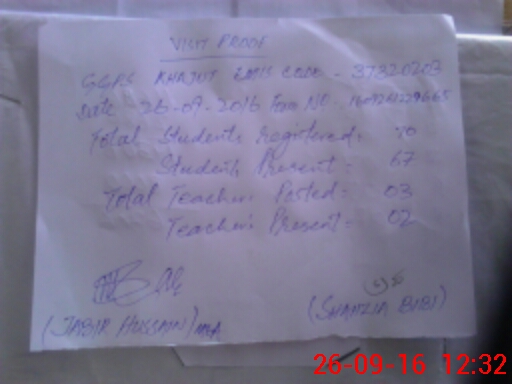 VISIT PROOF
GGPS KHAJUT EMIS CODE - 37320203
Date 26-09-2016 Form NO. 1609261229665
Total Students registered = 70
Students Present = 67
Total Teachers Posted = 03
Teachers Present = 02
(JABIR HUSSAIN) MEA
(SHAMZIA BIBI)
26-09-16 12:32